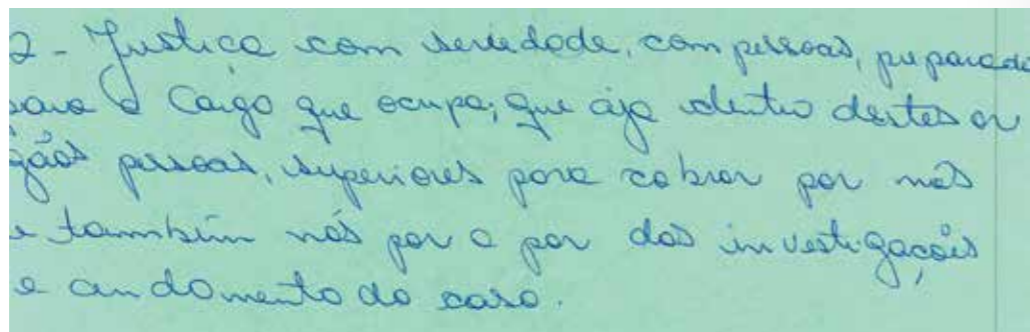 2 - Justiça com seriedade, com pessoas, preparada
para o Cargo que ocupa; que aja dentro destes or
gãos pessoas, superiores para cobrar por nós
e também nós por a par das investigações
e andamento do caso.